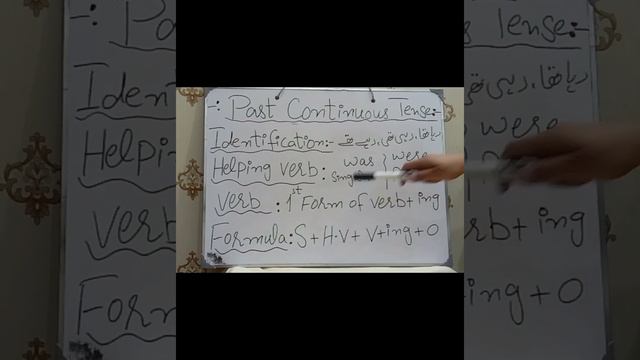 -: Past Continuous Tense:-
Identification:- رہا تھا، رہی تھی، رہے تھے
Helping verb: was } were
verb : 1st Form of verb + ing
Formula: S + H.V + V+ing + O